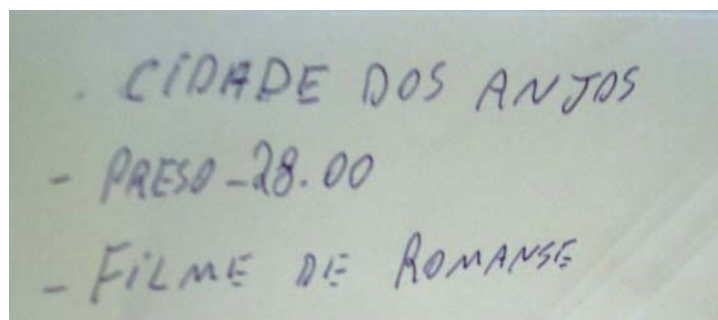 . CIDADE DOS ANJOS
- PRESO - 28.00
- FILME DE ROMANSE